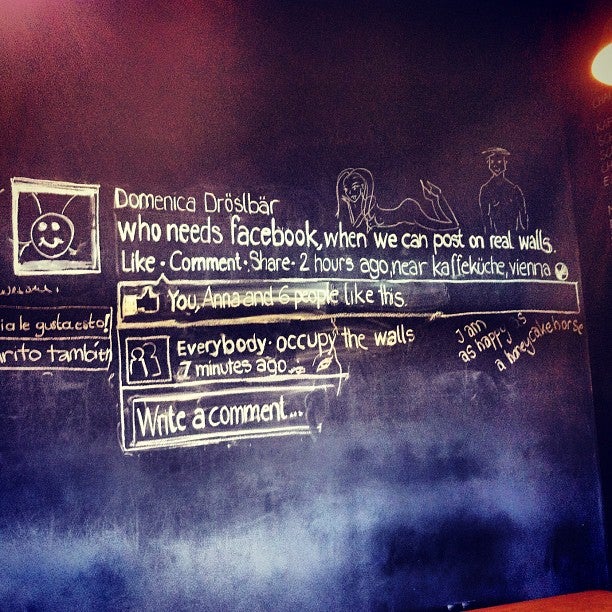 Domenica Dröslbär
who needs facebook, when we can post on real walls.
Like · Comment · Share · 2 hours ago, near kaffeküche, vienna
You, Anna and 6 people like this.
Everybody · occupy the walls
7 minutes ago
Write a comment...
ia le gusta esto!
rito también
I am
as happy as
a honeycakehorse